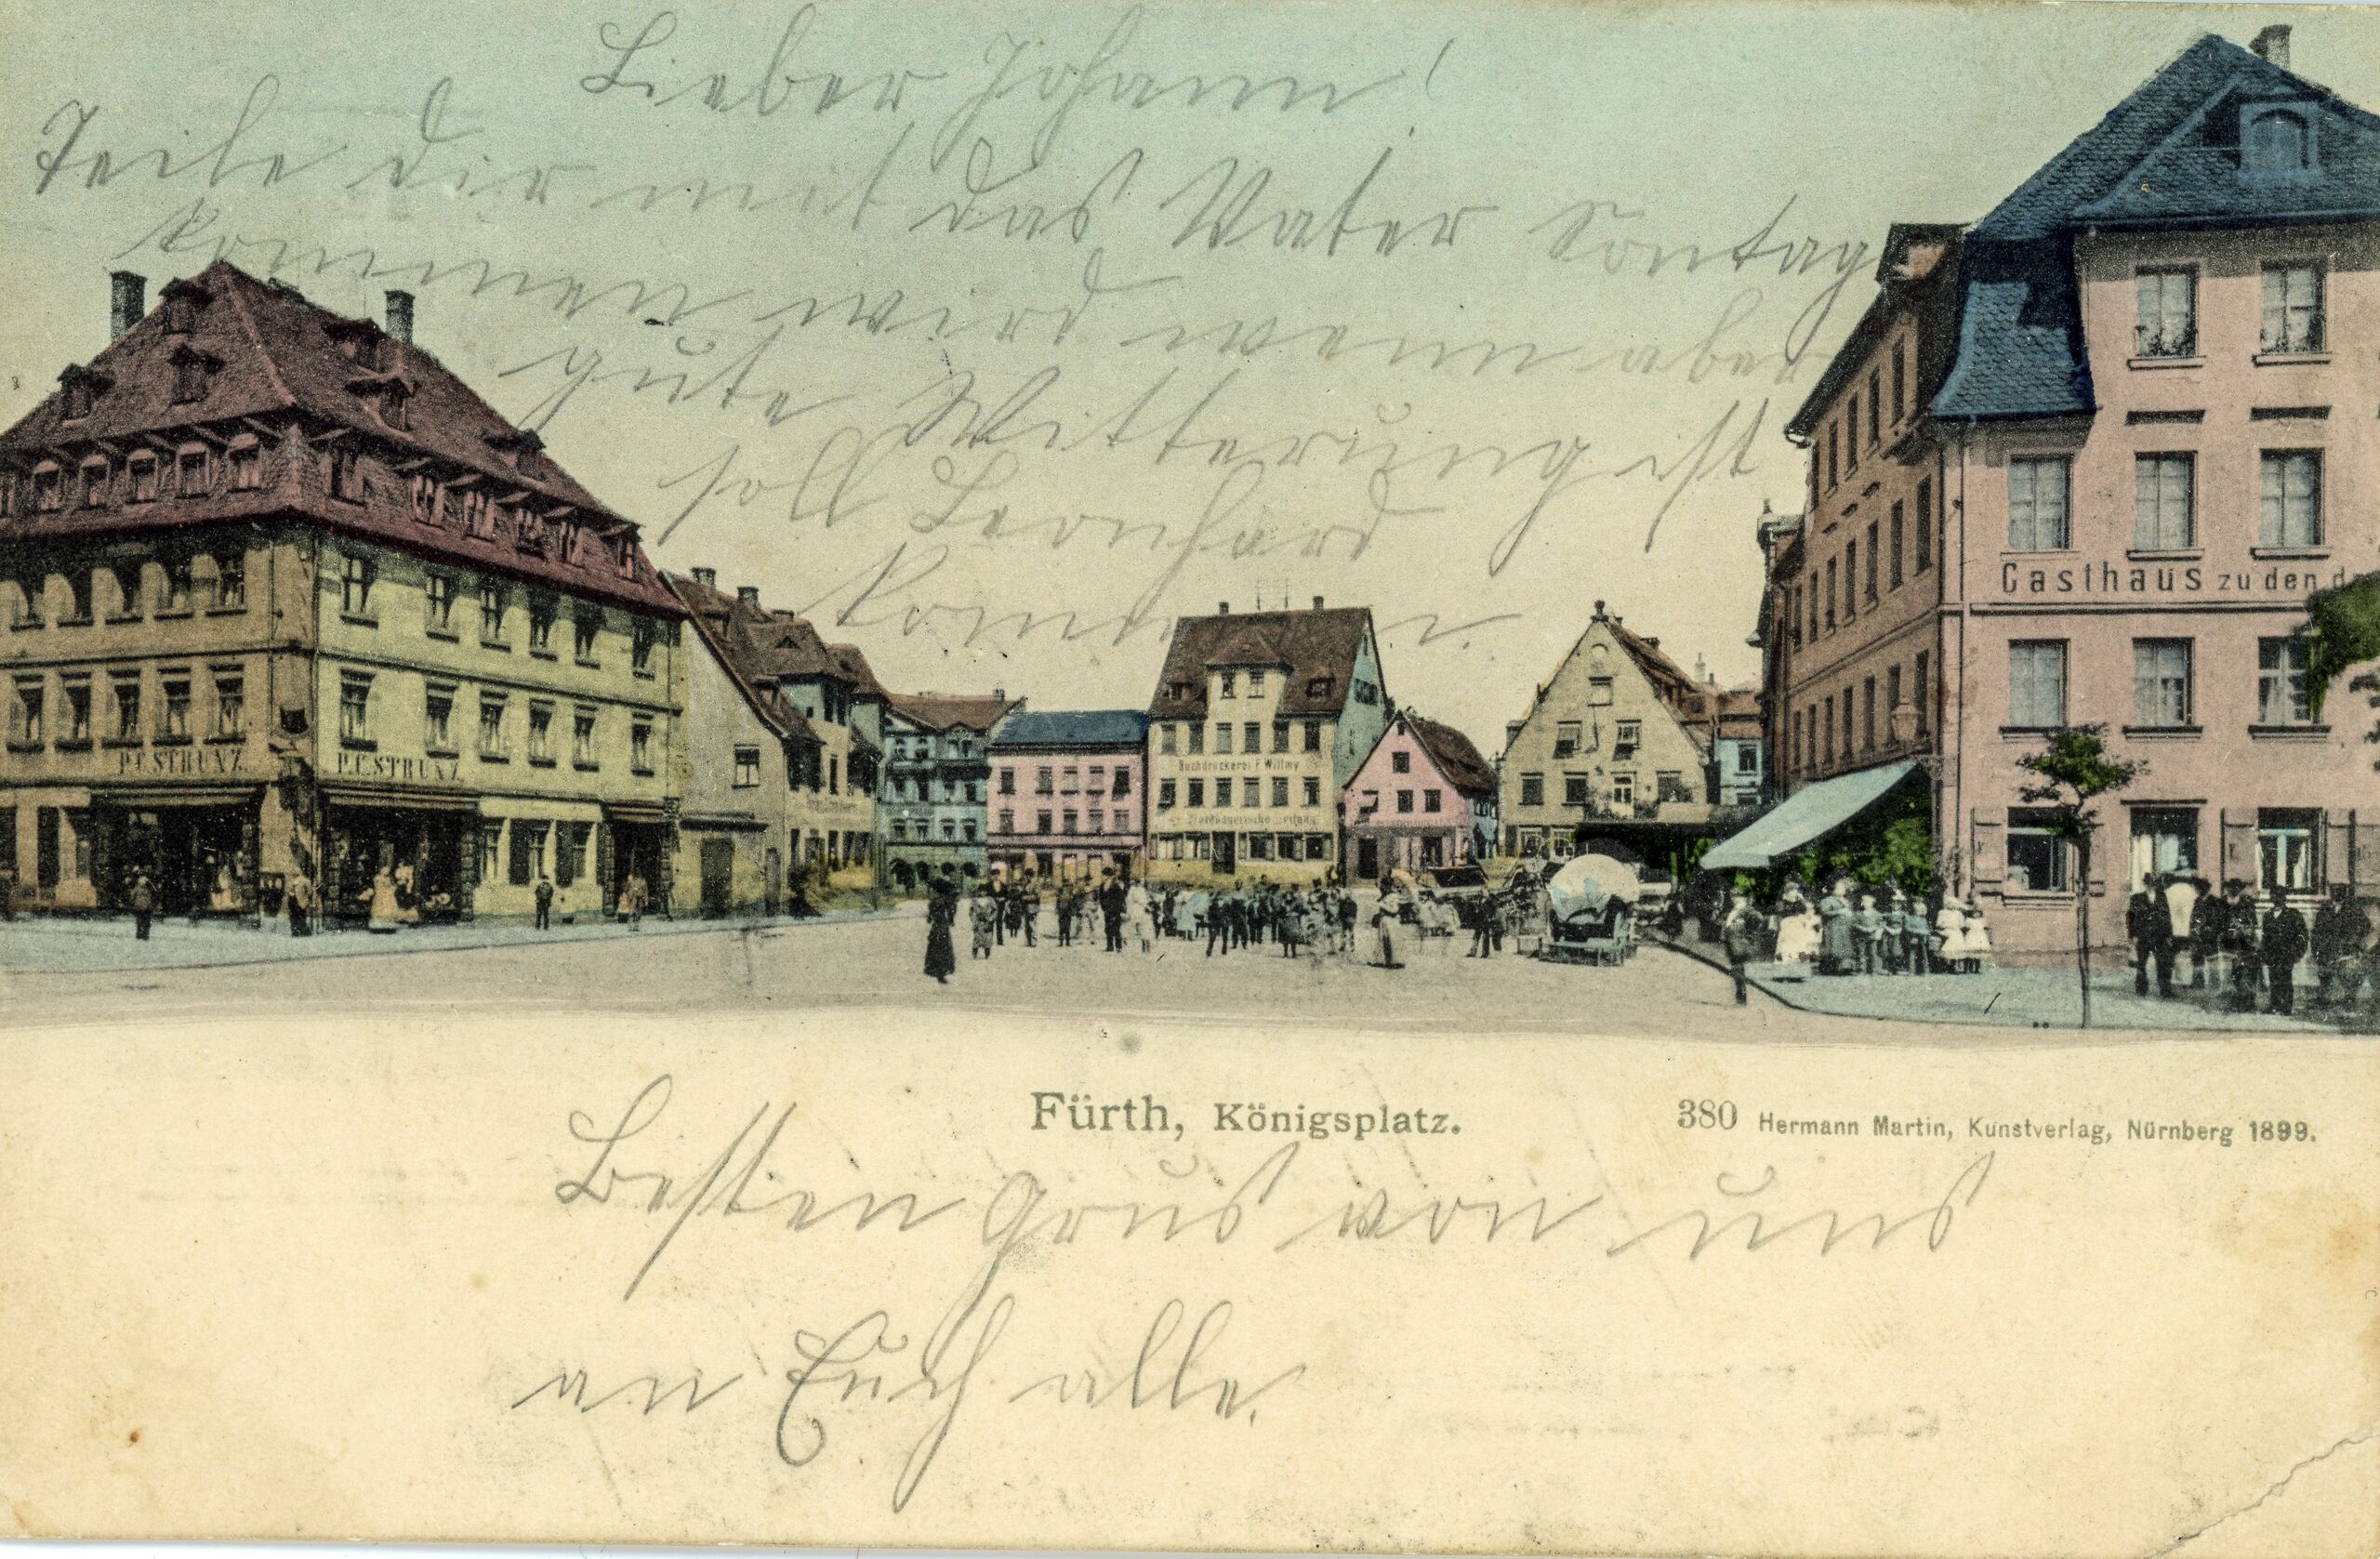 Lieber Johann!
Teile dir mit das Vater Sontag
kommen wird wenn aber
gute Witterung ist
soll Leonhard
kommen.
Gasthaus zu den
P. C. STRUNZ.
P. C. STRUNZ
Buchdruckerei F. Willmy
Fürth, Königsplatz.
380 Hermann Martin, Kunstverlag, Nürnberg 1899.
Besten Grus von uns
an Euch alle.